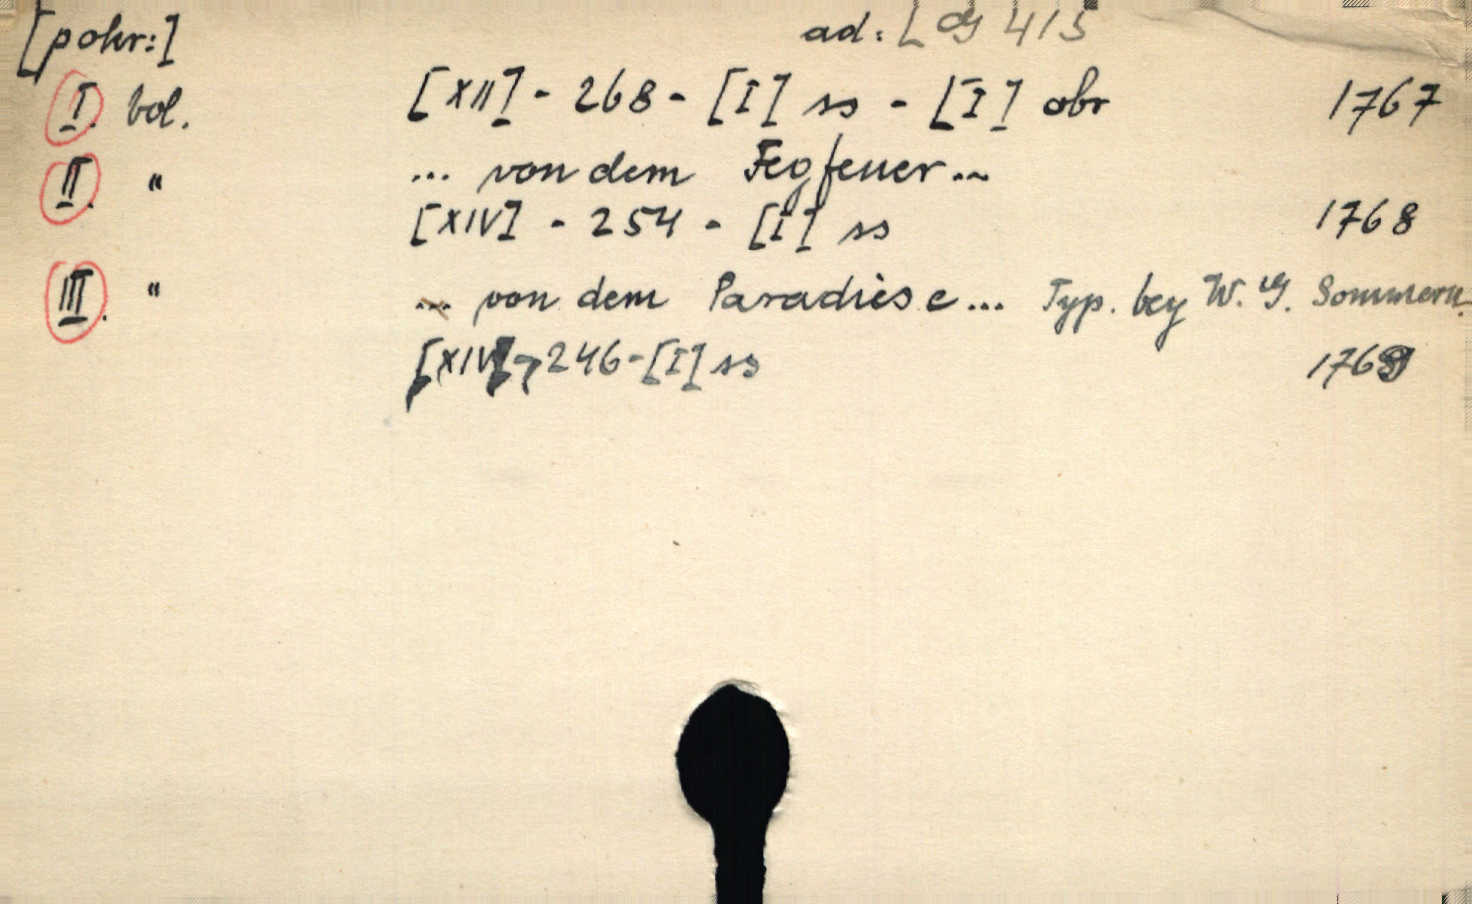 [pokr:] ad: L G 415
I. vol. [XII] - 268 - [I] ss - [I] obr 1767
II. " ... von dem Fegfeuer...
[XIV] - 254 - [I] ss 1768
III. " ... von dem Paradiese... Typ. bey W. G. Sommern.
[XIV] - 246 - [I] ss 1769